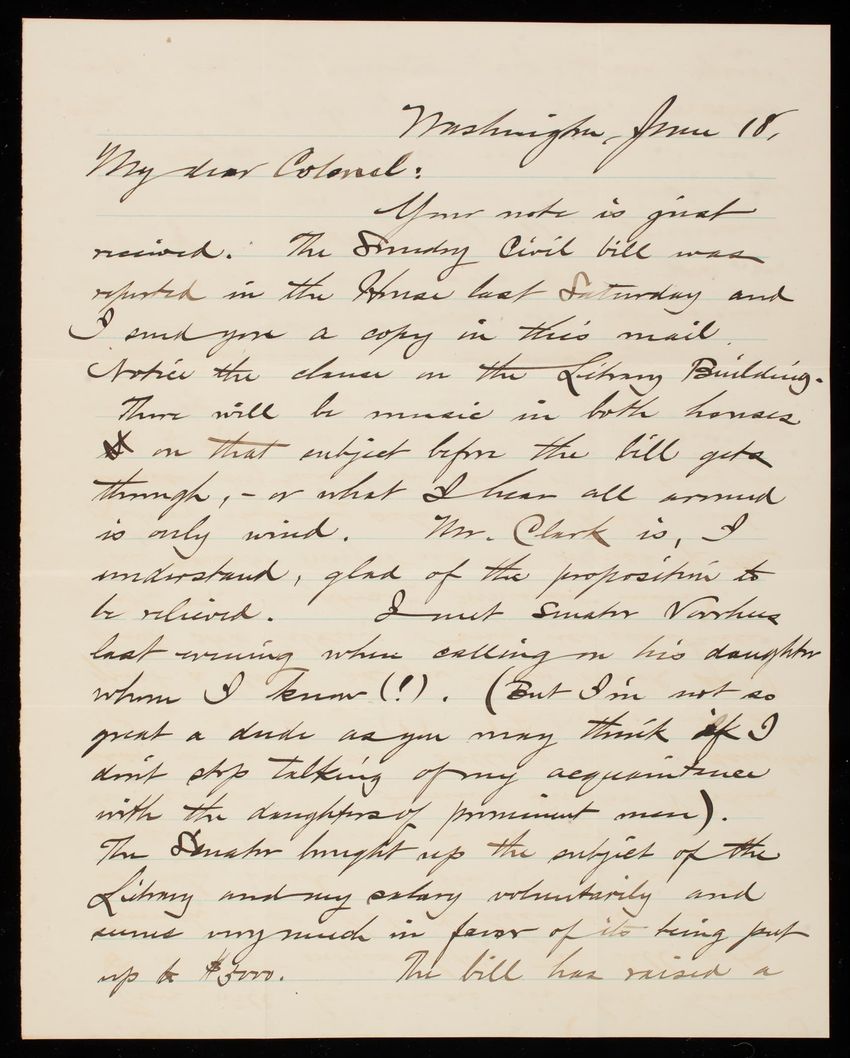 Washington, June 18,
My dear Colonel:
Your note is just
received. The Sundry Civil bill was
reported in the House last Saturday and
I send you a copy in this mail.
Notice the clause on the Library Building.
There will be music in both houses
on that subject before the bill gets
through, – or what I hear all around
is only wind. Mr. Clark is, I
understand, glad of the proposition to
be relieved. I met Senator Voorhees
last evening when calling on his daughter
whom I know (!). (But I'm not so
great a dude as you may think if I
don't stop talking of my acquaintance
with the daughters of prominent men).
The Senator brought up the subject of the
Library and my salary voluntarily and
seems very much in favor of its being put
up to $5000. The bill has raised a